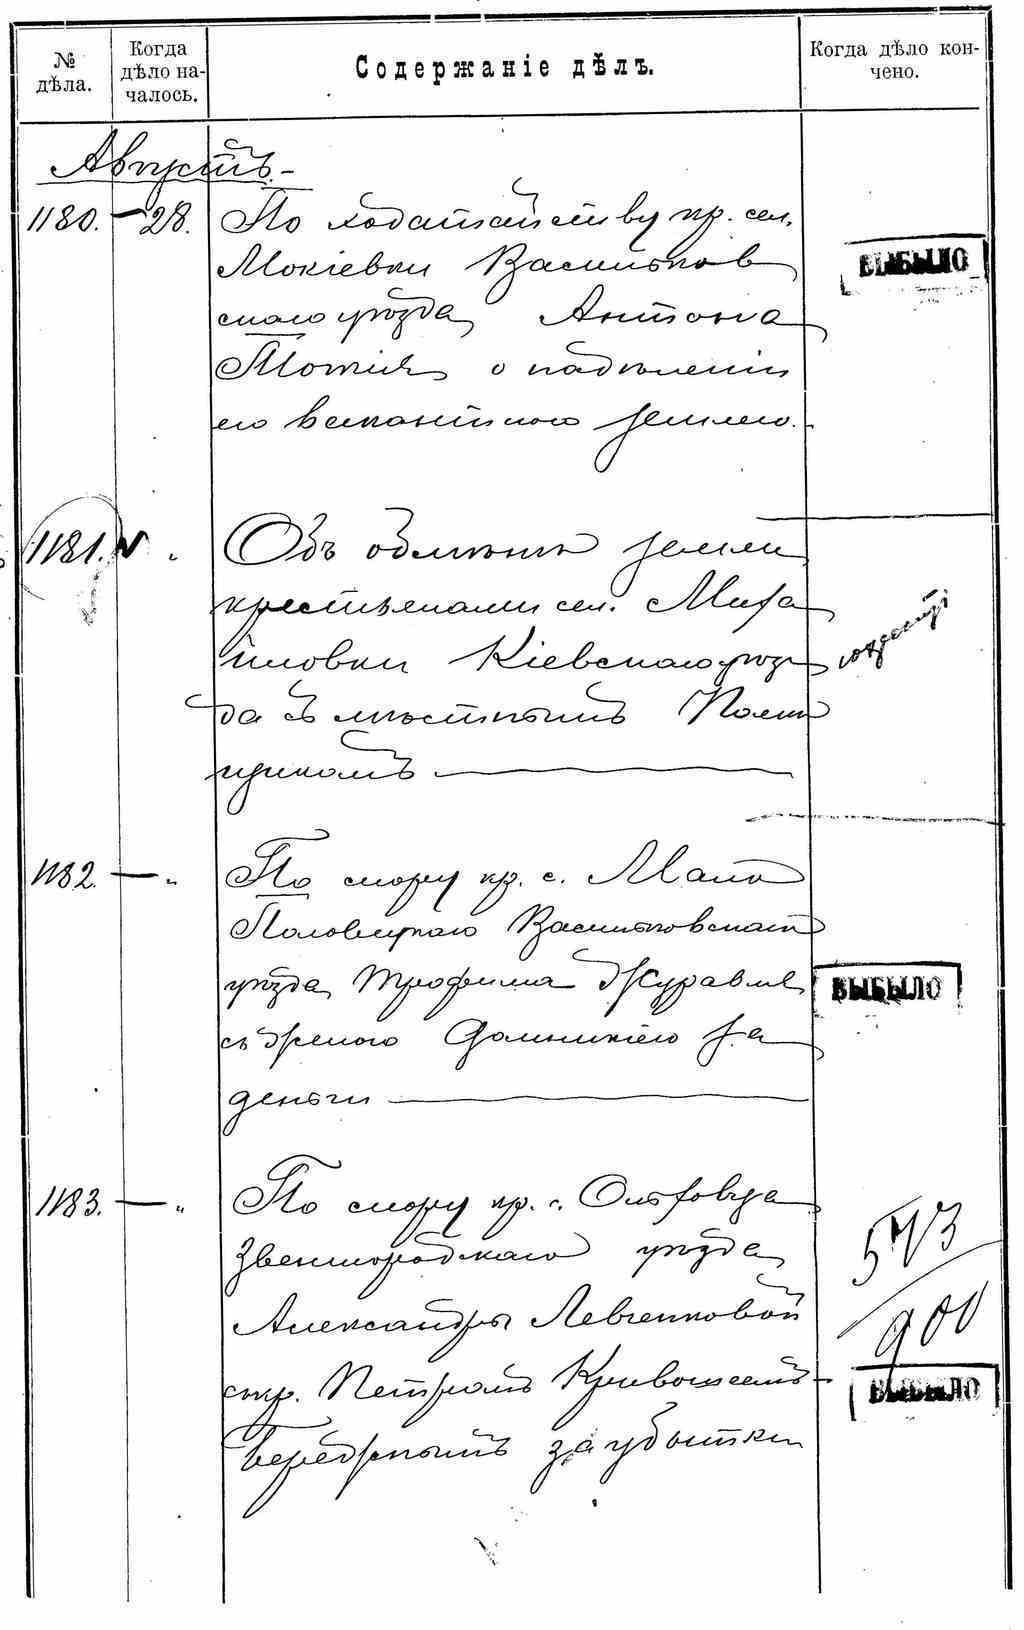 № дѣла.
Когда дѣло на-
чалось.
Содержаніе дѣлъ.
Когда дѣло кон-
чено.
Августъ.-
1180. — 28. По ходатайству кр. сел.
Мокіевки Васильков
скаго уѣзда Антона
о надѣленіи
его вакантною землею.
ВЫБЫЛО
1181. " Объ обмѣнѣ земли
крестьянами сел. Миха
йловки Кіевскаго уѣз
да съ мѣстнымъ Помѣ
щикомъ —
1182. — " По спору кр. с. Мало
Половецкаго Васильковскаго
уѣзда Трофима Журавля
съ за
деньги —
ВЫБЫЛО
1183. — " По спору кр. с.
Звенигородскаго уѣзда
Александры Левченковой
съ кр. Петромъ
за убытки
573
900
ВЫБЫЛО